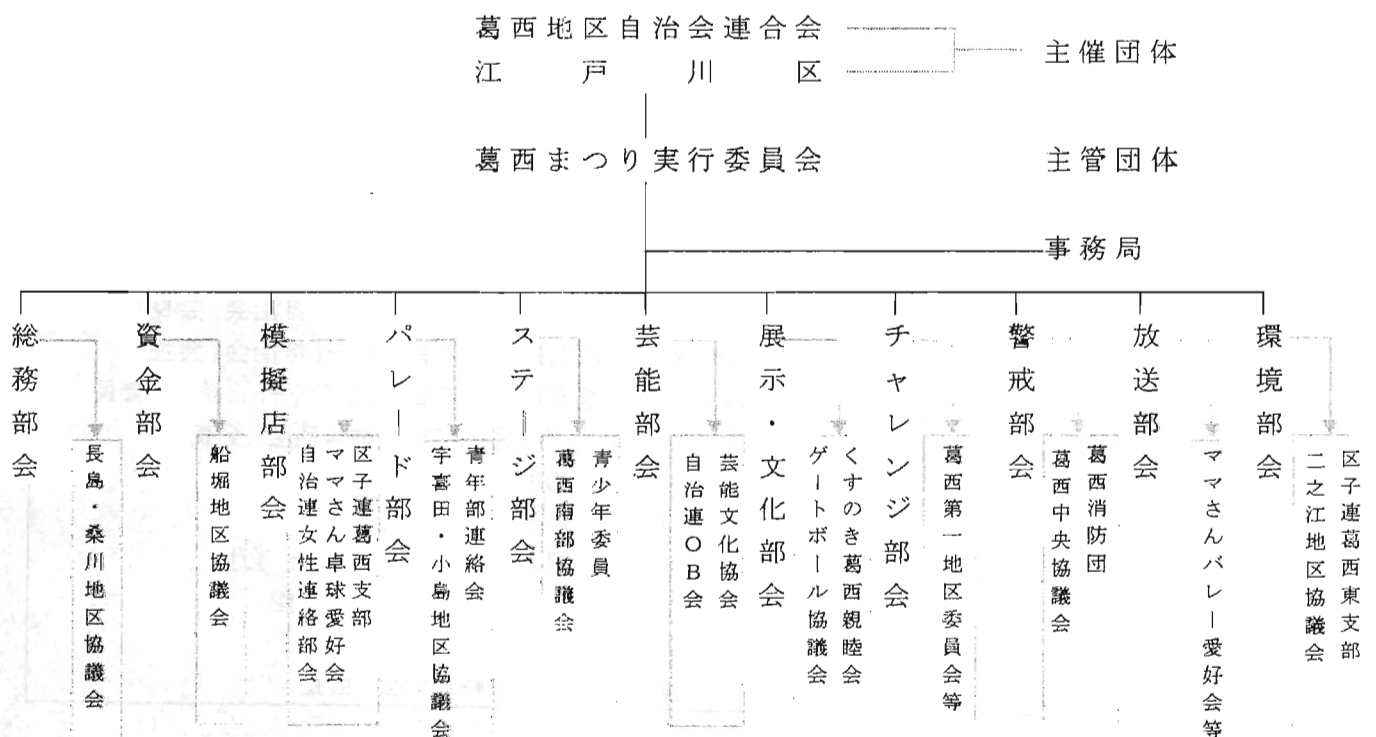 葛西地区自治会連合会
江戸川区
主催団体
葛西まつり実行委員会
主管団体
事務局
総務部会
長島・桑川地区協議会
資金部会
船堀地区協議会
模擬店部会
区子連葛西支部
ママさん卓球愛好会
自治連女性連絡部会
パレード部会
青年部連絡会
宇喜田・小島地区協議会
ステージ部会
青少年委員
葛西南部協議会
芸能部会
芸能文化協会
自治連OB会
展示・文化部会
くすのき葛西親睦会
ゲートボール協議会
チャレンジ部会
葛西第一地区委員会等
警戒部会
葛西消防団
葛西中央協議会
放送部会
ママさんバレー愛好会等
環境部会
区子連葛西東支部
二之江地区協議会